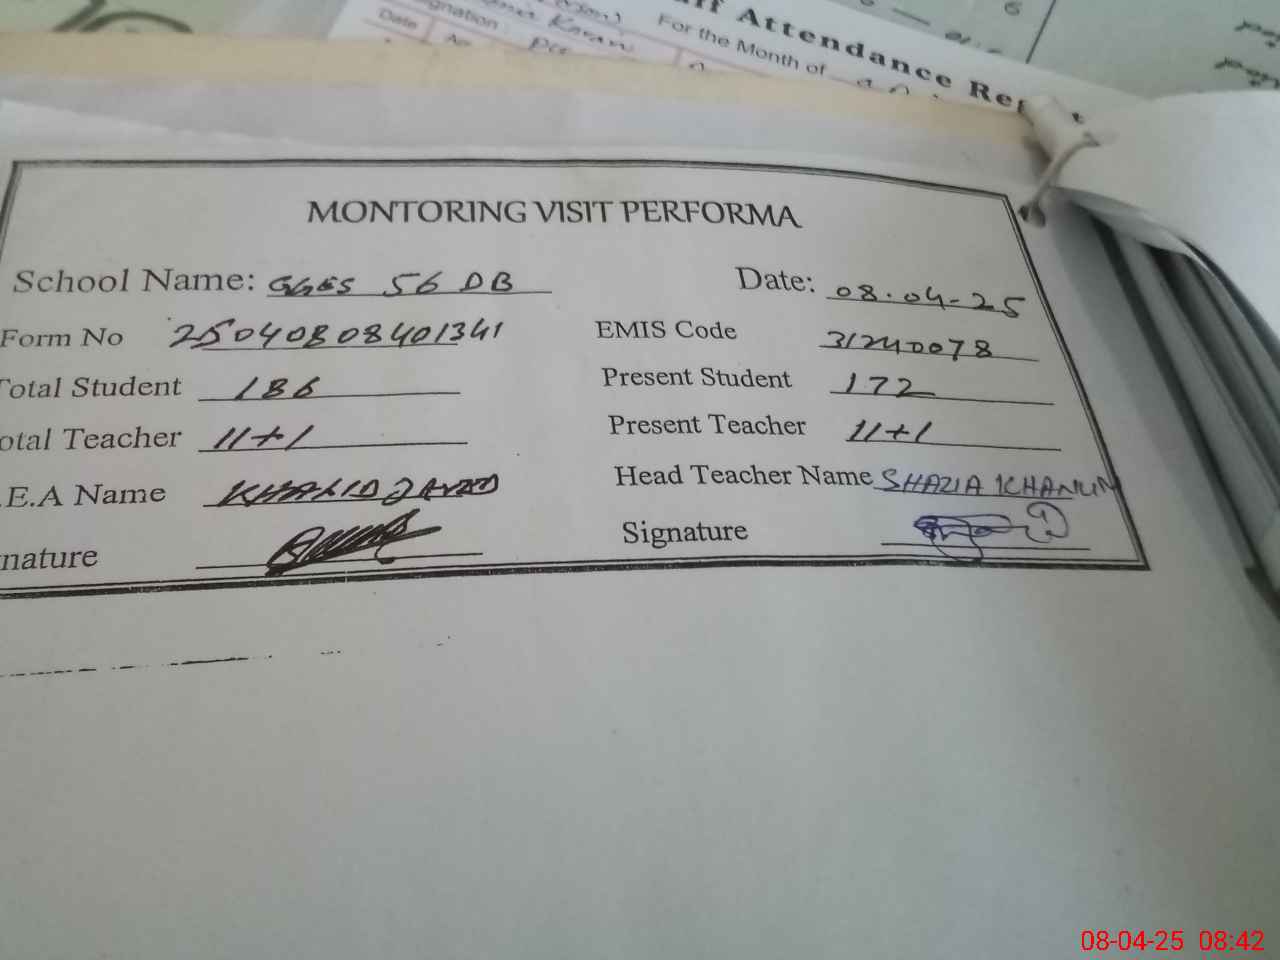 Attendance Re
For the Month of
gnation
Date
MONTORING VISIT PERFORMA
School Name: GGES 56 DB Date: 08.04-25
Form No 25040808401341 EMIS Code 31240078
Total Student 186 Present Student 172
otal Teacher 11+1 Present Teacher 11+1
.E.A Name KHALID JAVED Head Teacher Name SHAZIA KHANUM
nature Signature
08-04-25 08:42